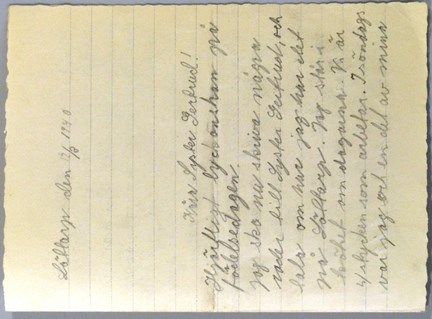 Löttorp den 12/3 1940
Kära Syster Gertrud!
Hjärtligt lyckönskan på
födelsedagen.
Jag ska nu skriva några
rader till Syster Gertrud, och
tala om hur jag har det
på Löttorp. Jag står i
köket om dagarna. Vi är
4 stycken som arbetar. I söndags
var jag och en del av mina